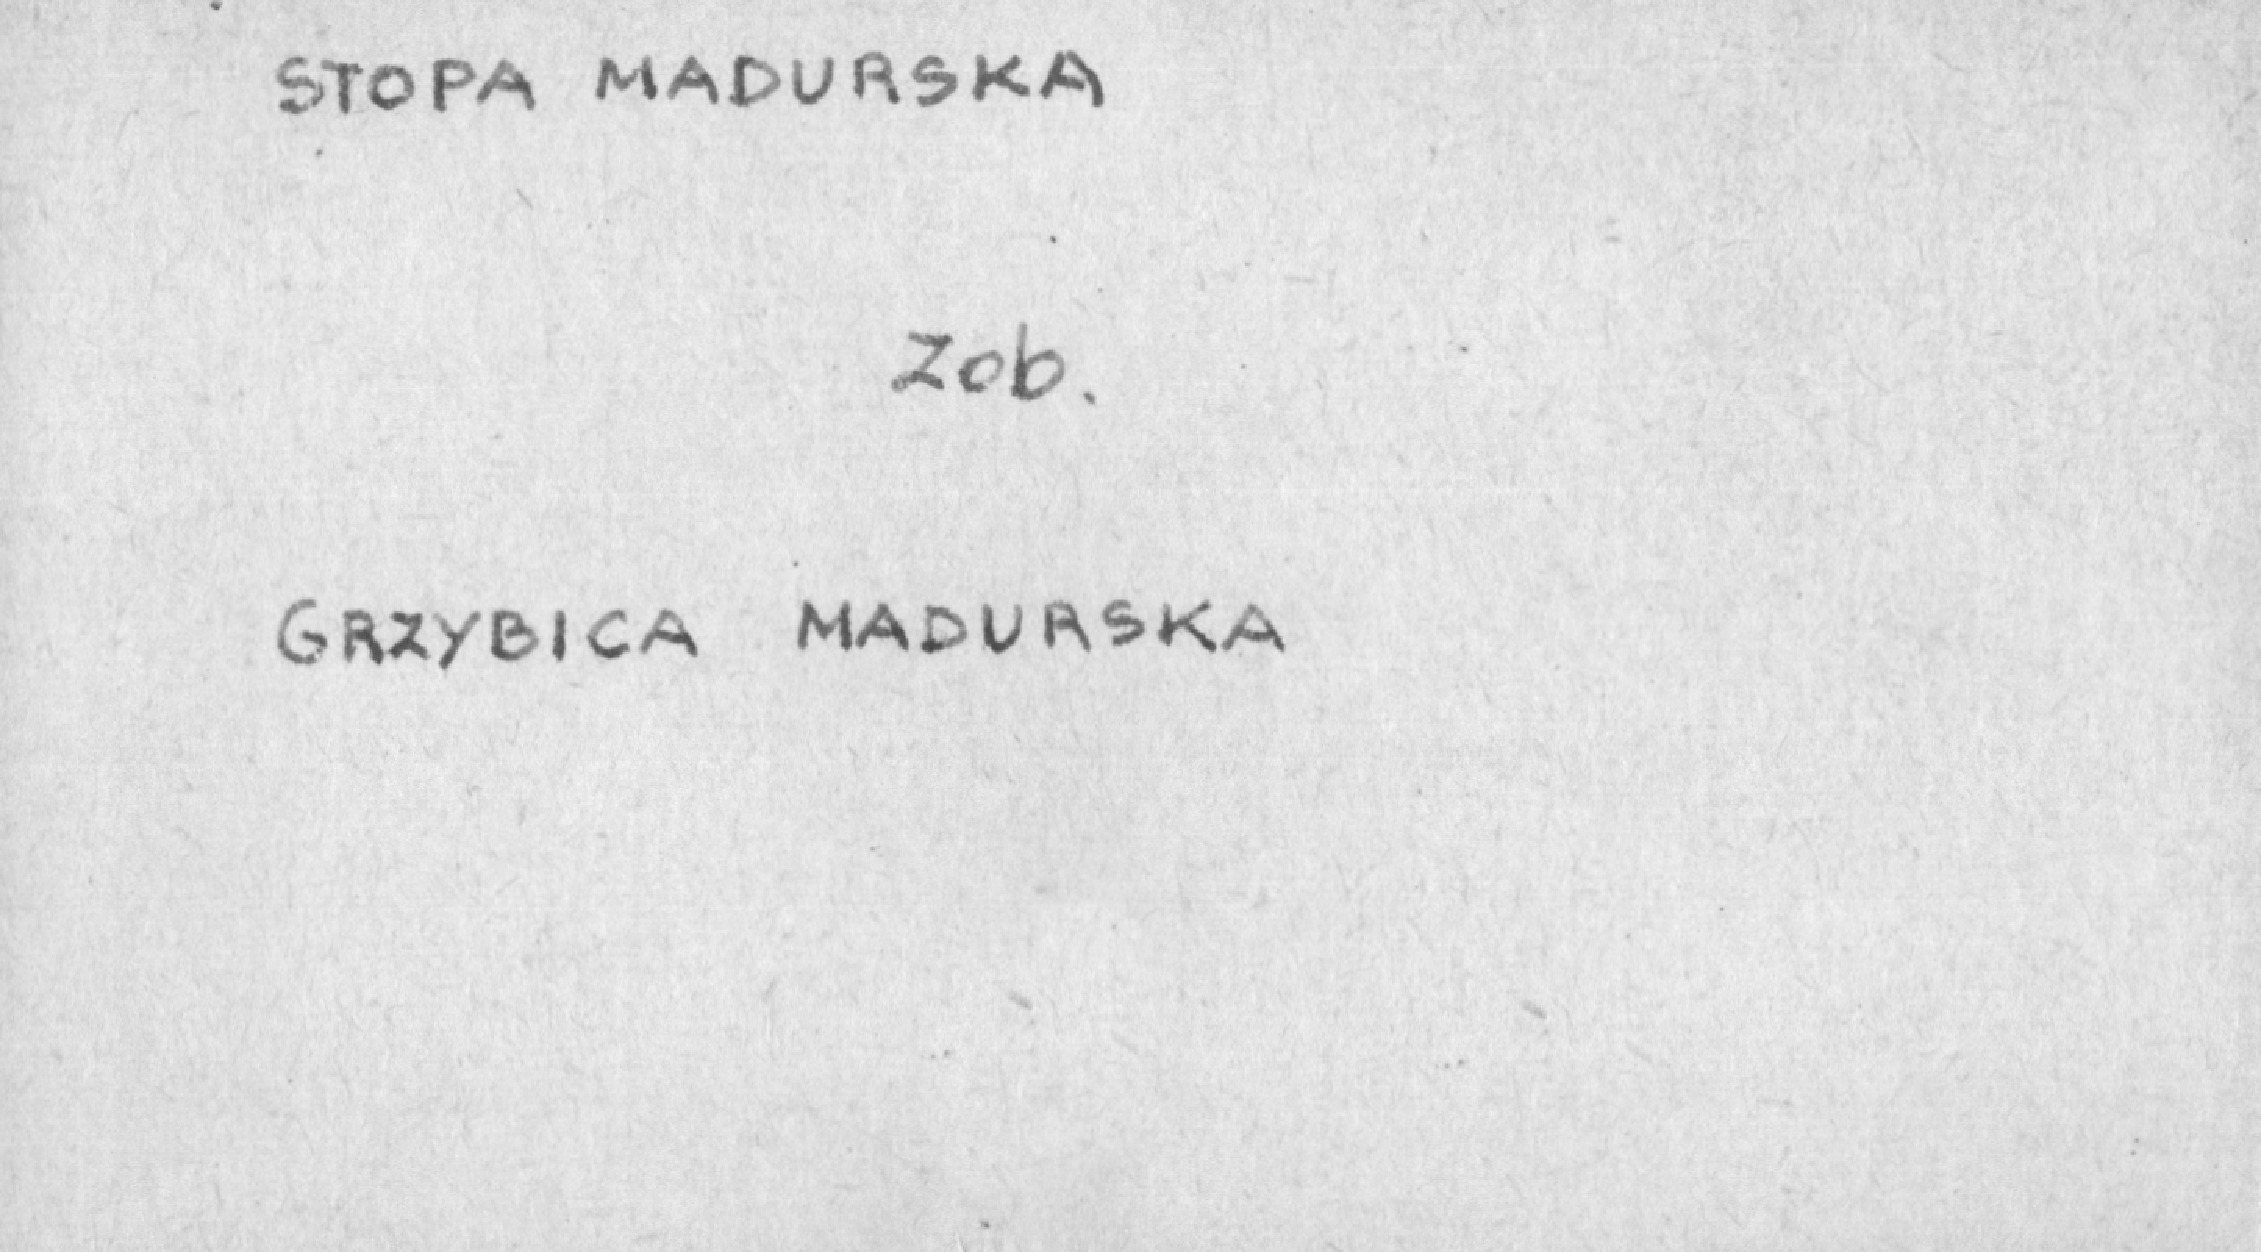 STOPA MADURSKA
Zob.
GRZYBICA MADURSKA